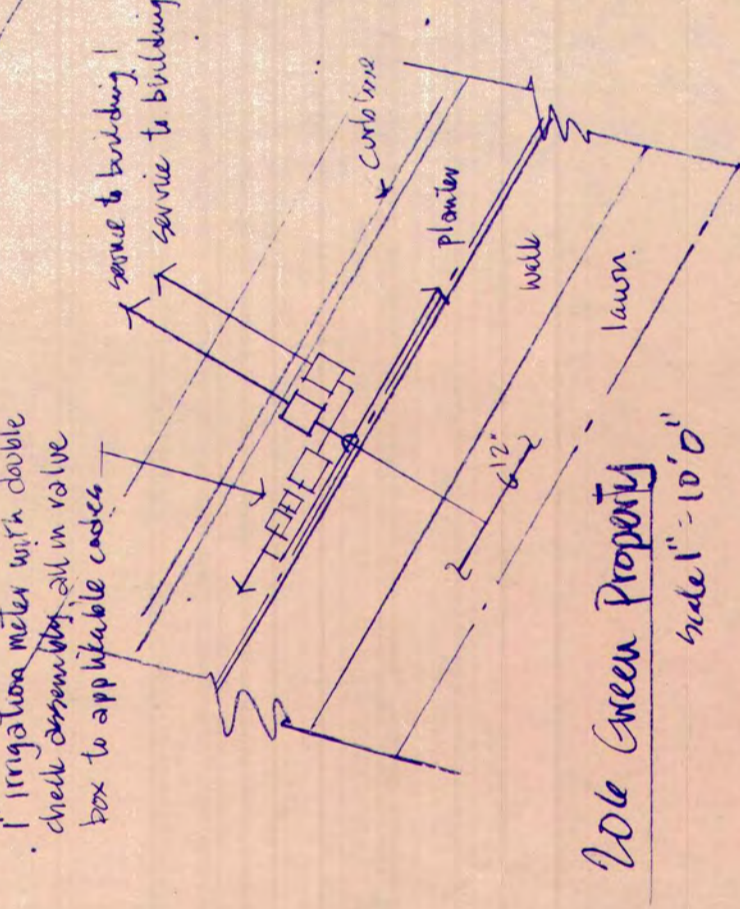 1" irrigation meter with double
check assembly all in valve
box to applicable codes
service to building!
service to building
curb line
planter
walk
lawn.
12"
206 Green Property
scale 1" = 10'0"